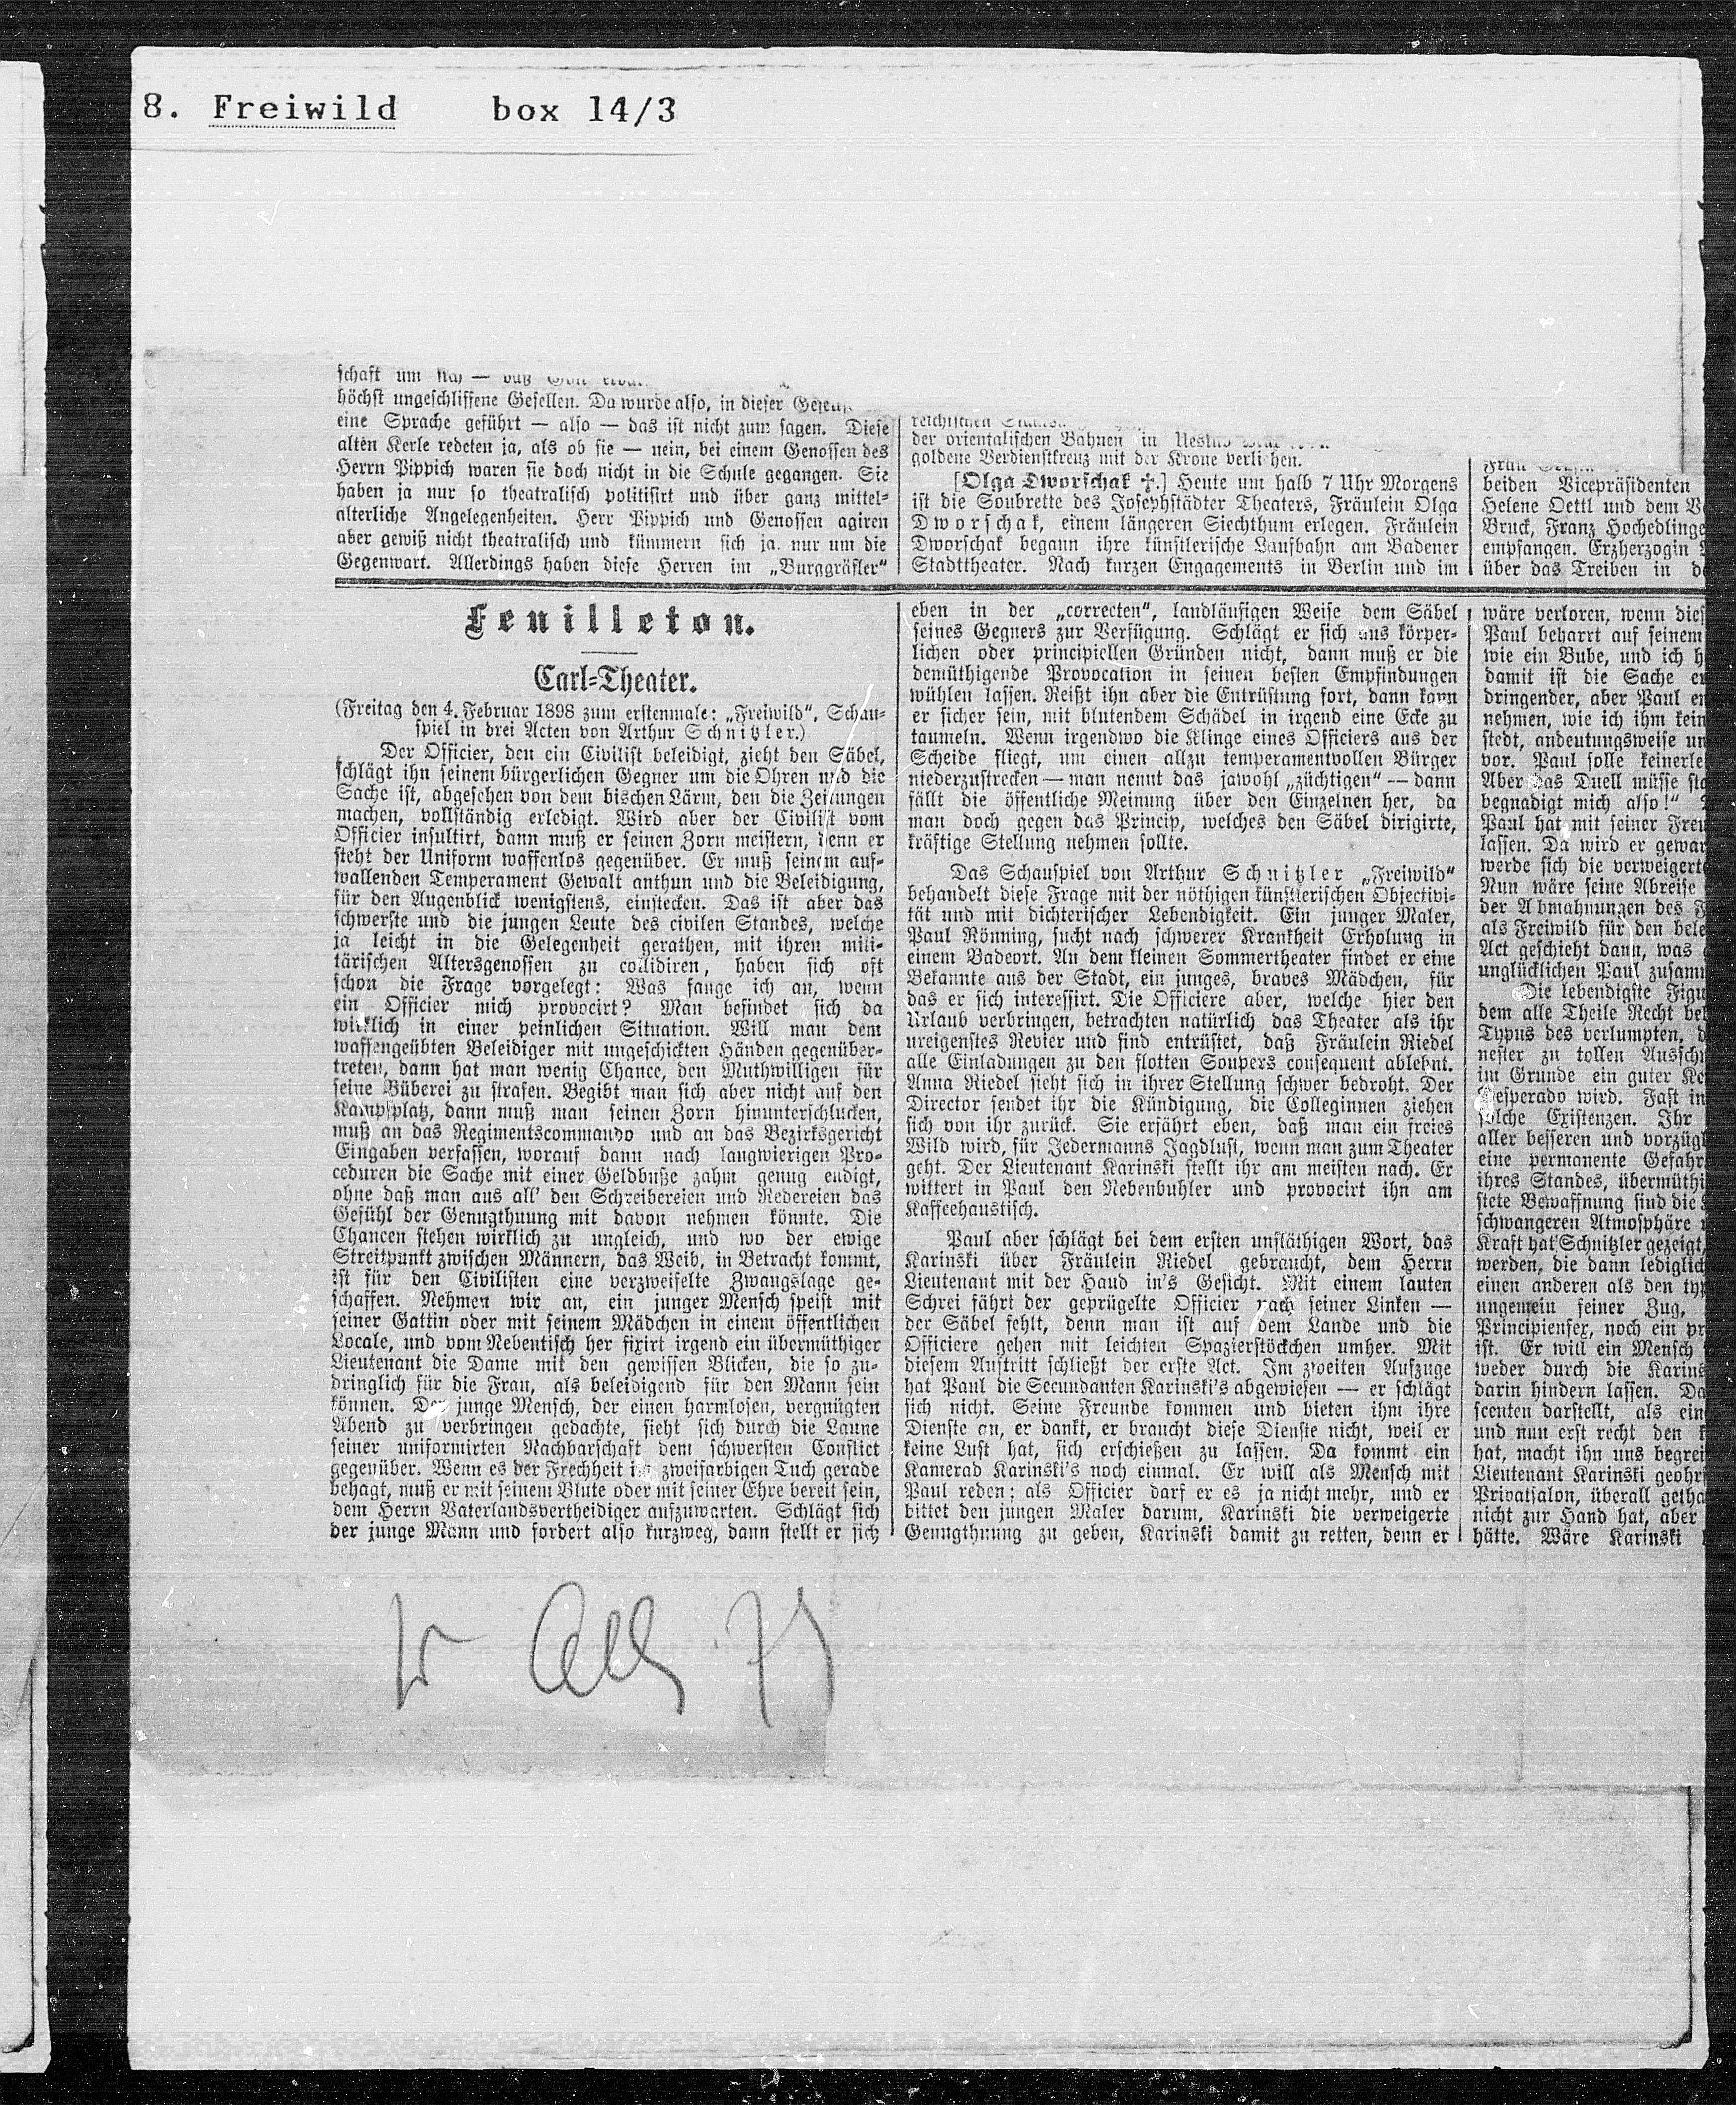 8. Freiwild box 14/3
schaft um
höchst ungeschliffene Gesellen. Da wurde also, in dieser
eine Sprache geführt — also — das ist nicht zum sagen. Diese
alten Kerle redeten ja, als ob sie — nein, bei einem Genossen des
Herrn Pippich waren sie doch nicht in die Schule gegangen. Sie
haben ja nur so theatralisch politisirt und über ganz mittel-
alterliche Angelegenheiten. Herr Pippich und Genossen agiren
aber gewiß nicht theatralisch und kümmern sich ja nur um die
Gegenwart. Allerdings haben diese Herren im „Burggräfler"
der orientalischen Bahnen in
goldene Verdienstkreuz mit der Krone verliehen.
[Olga Dworschak ✝.] Heute um halb 7 Uhr Morgens
ist die Soubrette des Josephstädter Theaters, Fräulein Olga
Dworschak, einem längeren Siechthum erlegen. Fräulein
Dworschak begann ihre künstlerische Laufbahn am Badener
Stadttheater. Nach kurzen Engagements in Berlin und im
beiden Vicepräsidenten
Helene Oettl und dem
Bruck, Franz Hochedlinge
empfangen. Erzherzogin
über das Treiben in
Feuilleton.
Carl-Theater.
(Freitag den 4. Februar 1898 zum erstenmale: „Freiwild", Schau-
spiel in drei Acten von Arthur Schnitzler.)
Der Officier, den ein Civilist beleidigt, zieht den Säbel,
schlägt ihn seinem bürgerlichen Gegner um die Ohren und die
Sache ist, abgesehen von dem bischen Lärm, den die Zeitungen
machen, vollständig erledigt. Wird aber der Civilist vom
Officier insultirt, dann muß er seinen Zorn meistern, denn er
steht der Uniform waffenlos gegenüber. Er muß seinem auf-
wallenden Temperament Gewalt anthun und die Beleidigung,
für den Augenblick wenigstens, einstecken. Das ist aber das
schwerste und die jungen Leute des civilen Standes, welche
ja leicht in die Gelegenheit gerathen, mit ihren mili-
tärischen Altersgenossen zu collidiren, haben sich oft
schon die Frage vorgelegt: Was fange ich an, wenn
ein Officier mich provocirt? Man befindet sich da
wirklich in einer peinlichen Situation. Will man dem
waffengeübten Beleidiger mit ungeschickten Händen gegenüber-
treten, dann hat man wenig Chance, den Muthwilligen für
seine Büberei zu strafen. Begibt man sich aber nicht auf den
Kampfplatz, dann muß man seinen Zorn hinunterschlucken,
muß an das Regimentscommando und an das Bezirksgericht
Eingaben verfassen, worauf dann nach langwierigen Pro-
ceduren die Sache mit einer Geldbuße zahm genug endigt,
ohne daß man aus all' den Schreibereien und Redereien das
Gefühl der Genugthuung mit davon nehmen könnte. Die
Chancen stehen wirklich zu ungleich, und wo der ewige
Streitpunkt zwischen Männern, das Weib, in Betracht kommt,
ist für den Civilisten eine verzweifelte Zwangslage ge-
schaffen. Nehmen wir an, ein junger Mensch speist mit
seiner Gattin oder mit seinem Mädchen in einem öffentlichen
Locale, und vom Nebentisch her fixirt irgend ein übermüthiger
Lieutenant die Dame mit den gewissen Blicken, die so zu-
dringlich für die Frau, als beleidigend für den Mann sein
können. Der junge Mensch, der einen harmlosen, vergnügten
Abend zu verbringen gedachte, sieht sich durch die Laune
seiner uniformirten Nachbarschaft dem schwersten Conflict
gegenüber. Wenn es der Frechheit im zweifarbigen Tuch gerade
behagt, muß er mit seinem Blute oder mit seiner Ehre bereit sein,
dem Herrn Vaterlandsvertheidiger aufzuwarten. Schlägt sich
der junge Mann und fordert also kurzweg, dann stellt er sich
eben in der „correcten", landläufigen Weise dem Säbel
seines Gegners zur Verfügung. Schlägt er sich aus körper-
lichen oder principiellen Gründen nicht, dann muß er die
demüthigende Provocation in seinen besten Empfindungen
wühlen lassen. Reißt ihn aber die Entrüstung fort, dann kann
er sicher sein, mit blutendem Schädel in irgend eine Ecke zu
taumeln. Wenn irgendwo die Klinge eines Officiers aus der
Scheide fliegt, um einen allzu temperamentvollen Bürger
niederzustrecken — man nennt das jawohl „züchtigen" — dann
fällt die öffentliche Meinung über den Einzelnen her, da
man doch gegen das Princip, welches den Säbel dirigirte,
kräftige Stellung nehmen sollte.
Das Schauspiel von Arthur Schnitzler „Freiwild"
behandelt diese Frage mit der nöthigen künstlerischen Objectivi-
tät und mit dichterischer Lebendigkeit. Ein junger Maler,
Paul Rönning, sucht nach schwerer Krankheit Erholung in
einem Badeort. An dem kleinen Sommertheater findet er eine
Bekannte aus der Stadt, ein junges, braves Mädchen, für
das er sich interessirt. Die Officiere aber, welche hier den
Urlaub verbringen, betrachten natürlich das Theater als ihr
ureigenstes Revier und sind entrüstet, daß Fräulein Riedel
alle Einladungen zu den flotten Soupers consequent ablehnt.
Anna Riedel sieht sich in ihrer Stellung schwer bedroht. Der
Director sendet ihr die Kündigung, die Colleginnen ziehen
sich von ihr zurück. Sie erfährt eben, daß man ein freies
Wild wird, für Jedermanns Jagdlust, wenn man zum Theater
geht. Der Lieutenant Karinski stellt ihr am meisten nach. Er
wittert in Paul den Nebenbuhler und provocirt ihn am
Kaffeehaustisch.
Paul aber schlägt bei dem ersten unfläthigen Wort, das
Karinski über Fräulein Riedel gebraucht, dem Herrn
Lieutenant mit der Hand in's Gesicht. Mit einem lauten
Schrei fährt der geprügelte Officier nach seiner Linken —
der Säbel fehlt, denn man ist auf dem Lande und die
Officiere gehen mit leichten Spazierstöckchen umher. Mit
diesem Auftritt schließt der erste Act. Im zweiten Aufzuge
hat Paul die Secundanten Karinski's abgewiesen — er schlägt
sich nicht. Seine Freunde kommen und bieten ihm ihre
Dienste an, er dankt, er braucht diese Dienste nicht, weil er
keine Lust hat, sich erschießen zu lassen. Da kommt ein
Kamerad Karinski's noch einmal. Er will als Mensch mit
Paul reden; als Officier darf er es ja nicht mehr, und er
bittet den jungen Maler darum, Karinski die verweigerte
Genugthuung zu geben, Karinski damit zu retten, denn er
wäre verloren, wenn dies
Paul beharrt auf seinem
wie ein Bube, und ich
damit ist die Sache
dringender, aber Paul
nehmen, wie ich ihm kein
stedt, andeutungsweise
vor. Paul solle keinerle
Aber das Duell müsse
begnadigt mich also!"
Paul hat mit seiner
lassen. Da wird er
werde sich die verweigert
Nun wäre seine Abreise
der Abmahnungen des
als Freiwild für den
Act geschieht dann, was
unglücklichen Paul zusam
Die lebendigste Figu
dem alle Theile Recht
Typus des verlumpten,
nester zu tollen
im Grunde ein guter
Desperado wird. Fast in
solche Existenzen. Ihr
aller besseren und vorzügl
eine permanente Gefahr
ihres Standes, übermüthi
stete Bewaffnung sind die
schwangeren Atmosphäre
Kraft hat Schnitzler gezeigt,
werden, die dann lediglich
einen anderen als den
ungemein feiner Zug,
Principienfex, noch ein
ist. Er will ein Mensch
weder durch die Karins
darin hindern lassen.
scenten darstellt, als ein
und nun erst recht den
hat, macht ihn uns begrei
Lieutenant Karinski geohrf
Privatsalon, überall getha
nicht zur Hand hat, aber
hätte. Wäre Karinski